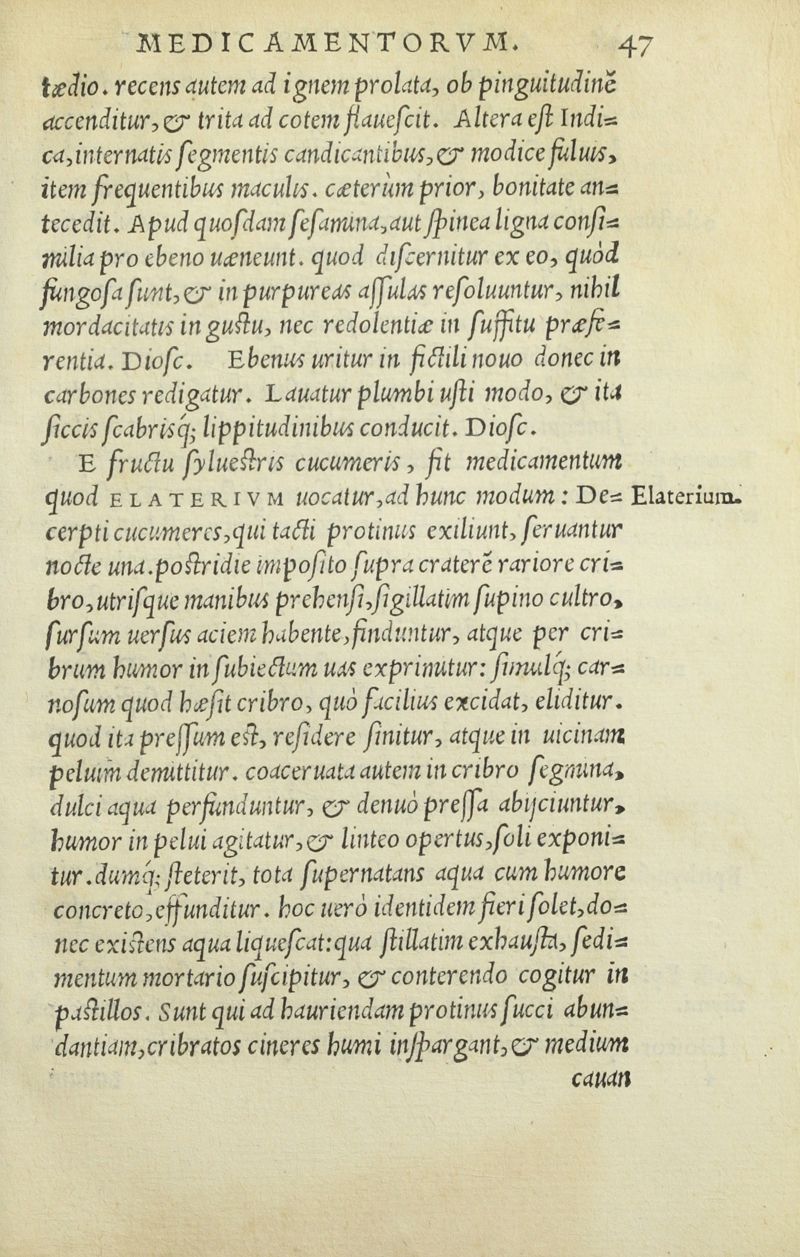 MEDICAMENTORVM. 47
tædio. recens autem ad ignem prolata, ob pinguitudinē
accenditur, & trita ad cotem flaueſcit. Altera eſt Indi=
ca, internatis ſegmentis candicantibus, & modice fuluis,
item frequentibus maculis. cæterùm prior, bonitate an=
tecedit. Apud quoſdam ſeſamina, aut ſpinea ligna conſi=
milia pro ebeno uæneunt. quod diſcernitur ex eo, quòd
fungoſa ſunt, & in purpureas aſſulas reſoluuntur, nihil
mordacitatis in guſtu, nec redolentiæ in ſuffitu præfe=
rentia. Dioſc. Ebenus uritur in fictili nouo donec in
carbones redigatur. Lauatur plumbi uſti modo, & ita
ſiccis ſcabrisq; lippitudinibus conducit. Dioſc.
E fructu ſylueſtris cucumeris, fit medicamentum
quod ELATERIVM uocatur, ad hunc modum: De= Elaterium.
cerpti cucumeres, qui tacti protinus exiliunt, ſeruantur
nocte una. poſtridie impoſito ſupra craterē rariore cri=
bro, utriſque manibus prehenſi, ſigillatim ſupino cultro,
ſurſum uerſus aciem habente, finduntur, atque per cri=
brum humor in ſubiectum uas exprimitur: ſimulq́; car=
noſum quod hæſit cribro, quò facilius excidat, eliditur.
quod ita preſſum eſt, reſidere ſinitur, atque in uicinam
peluim demittitur. coaceruata autem in cribro ſegmina,
dulci aqua perfunduntur, & denuò preſſa abijciuntur,
humor in pelui agitatur, & linteo opertus, ſoli exponi=
tur. dumq́; ſteterit, tota ſupernatans aqua cum humore
concreto, effunditur. hoc uerò identidem fieri ſolet, do=
nec exiſtens aqua liqueſcat: qua ſtillatim exhauſta, ſedi=
mentum mortario ſuſcipitur, & conterendo cogitur in
paſtillos. Sunt qui ad hauriendam protinus ſucci abun=
dantiam, cribratos cineres humi inſpargant, & medium
cauan